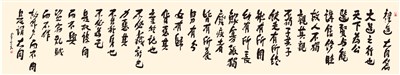 禮運大同篇
大道之行也
天下為公
選賢與能
講信修睦
故人不獨
親其親不
獨子其子
使老有所終
壯有所用
幼有所長
矜寡孤獨
廢疾者
皆有所養
男有分
女有歸
貨惡其棄
於地也不
必藏於己
力惡其不
出於身也
不必為己
是故謀閉
而不興
盜竊亂賊
而不作
故外戶而不閉
是謂大同